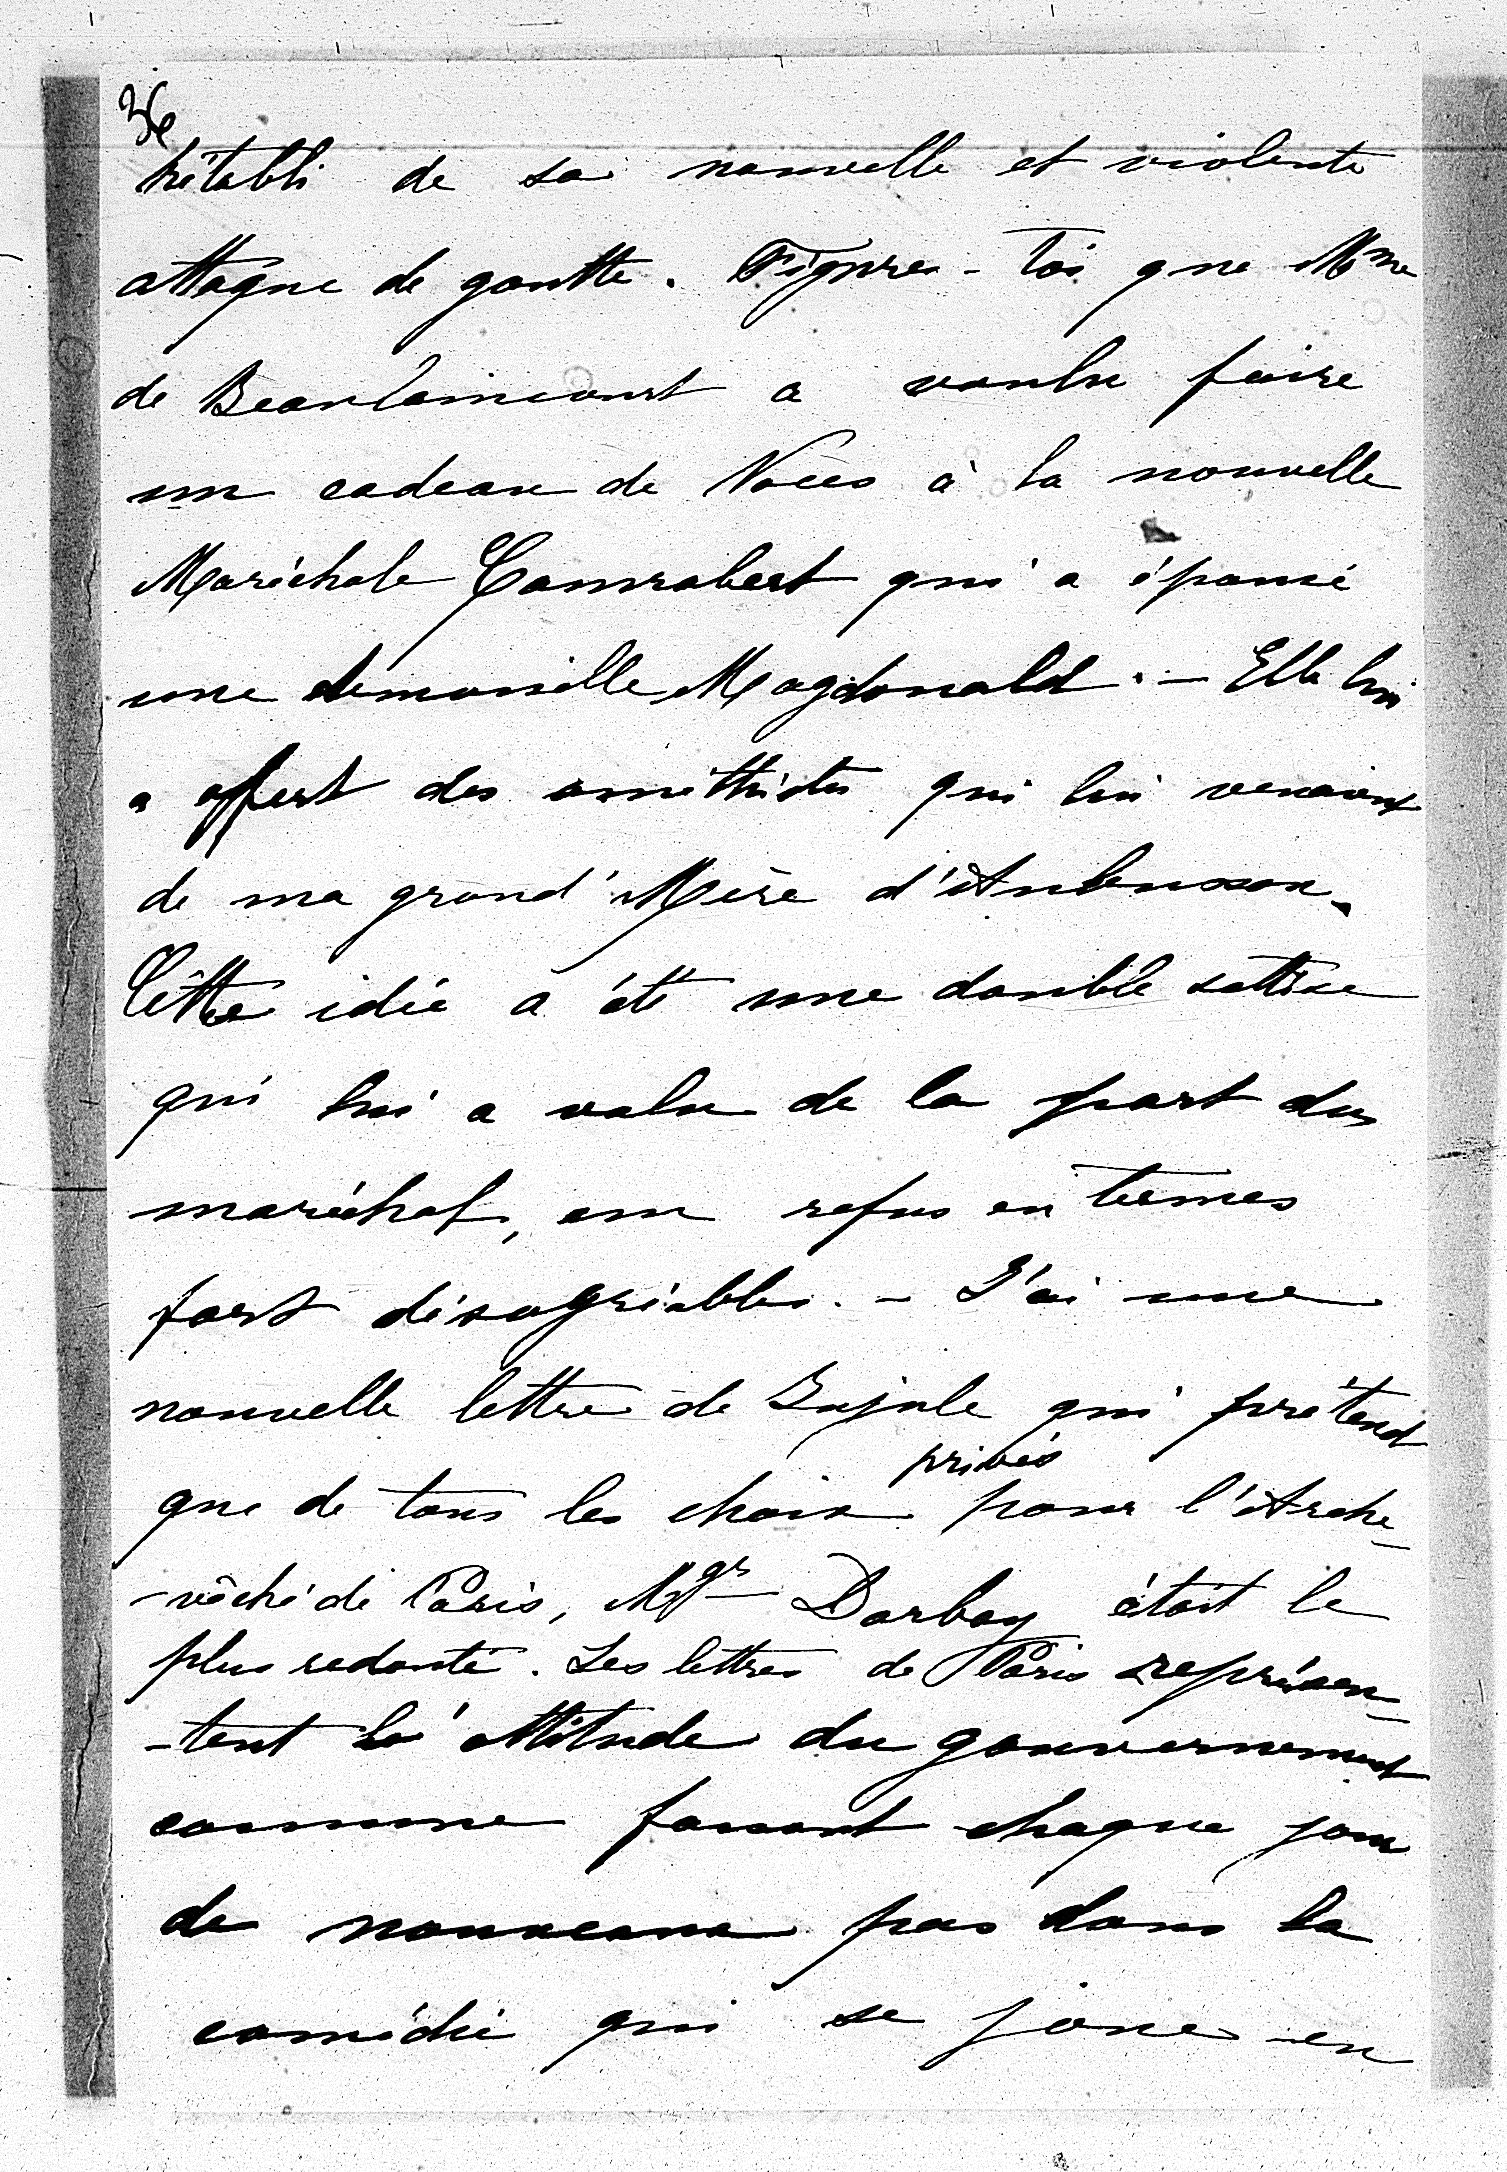 36
rétabli de sa nouvelle et violente
attaque de goutte. Figures-toi que Mme
de Beaulaincourt a voulu faire
un cadeau de Noces à la nouvelle
Maréchale Canrobert qui a épousé
une demoiselle Magdonald. - Elle lui
a offert des améthistes qui lui venaient
de ma grand'Mère d'Aubusson.
Cette idée a été une double sottise
qui lui a valu de la part du
maréchal, un refus en termes
fort désagréables. - J'ai une
nouvelle lettre de qui prétend
privés
que de tous les choix pour l'Arche-
-vêché de Paris, Mgr Darboy était le
plus redouté. Les lettres de Paris représen-
-tent l'attitude du gouvernement
comme faisant chaque jour
de nouveaux pas dans la
comédie qui se joue en